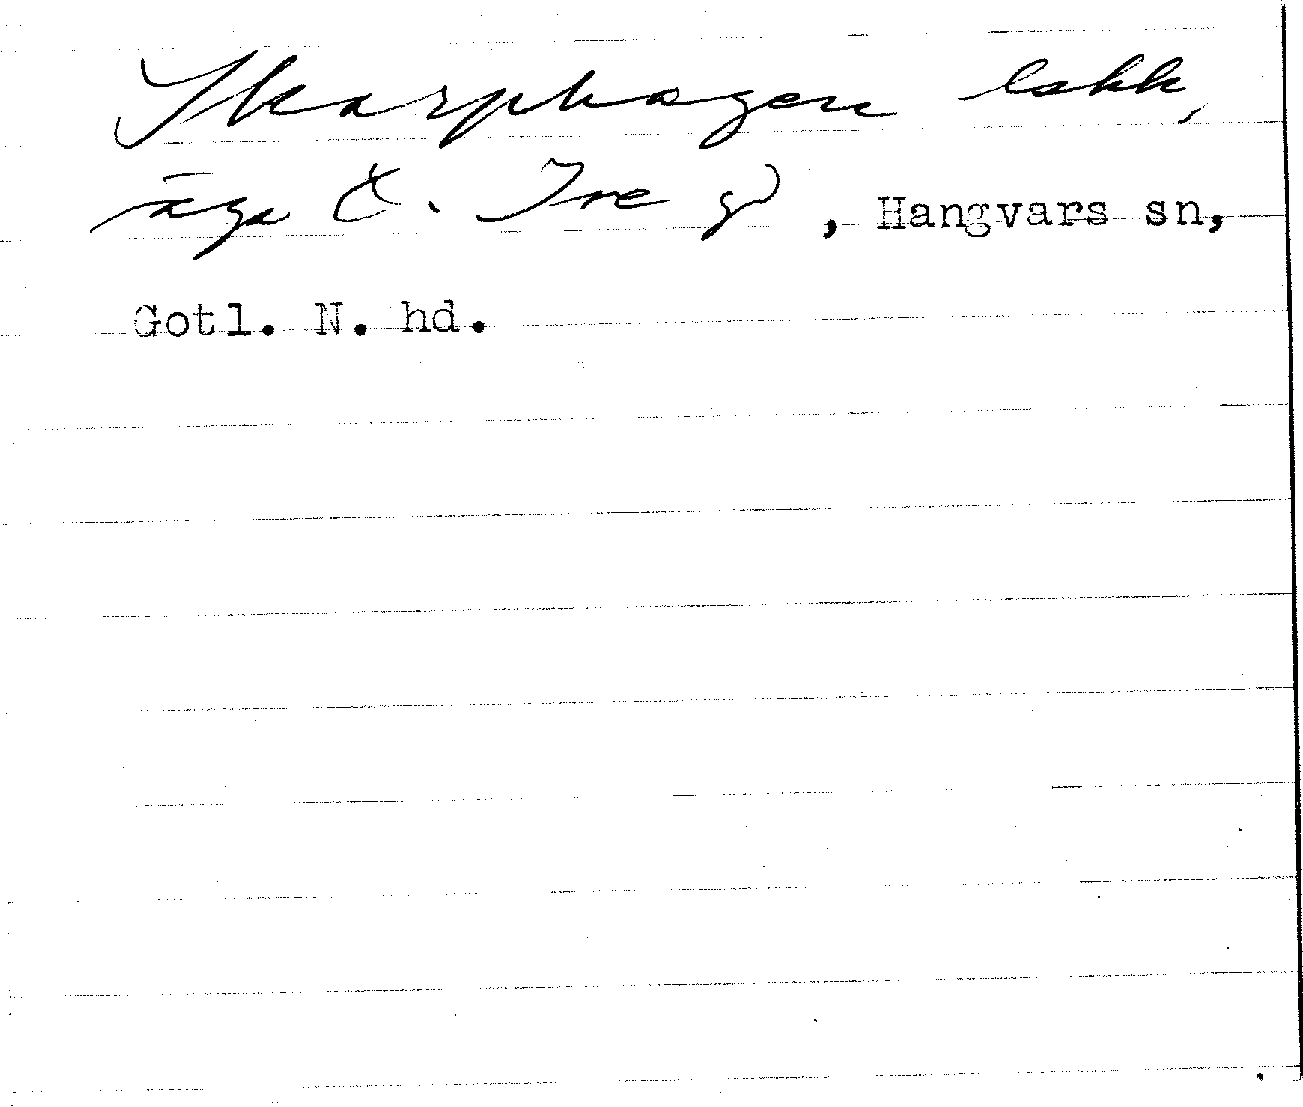 Skarphagen lokk,
äga Ö. Ire gd, Hangvars sn,
Gotl. N. hd.